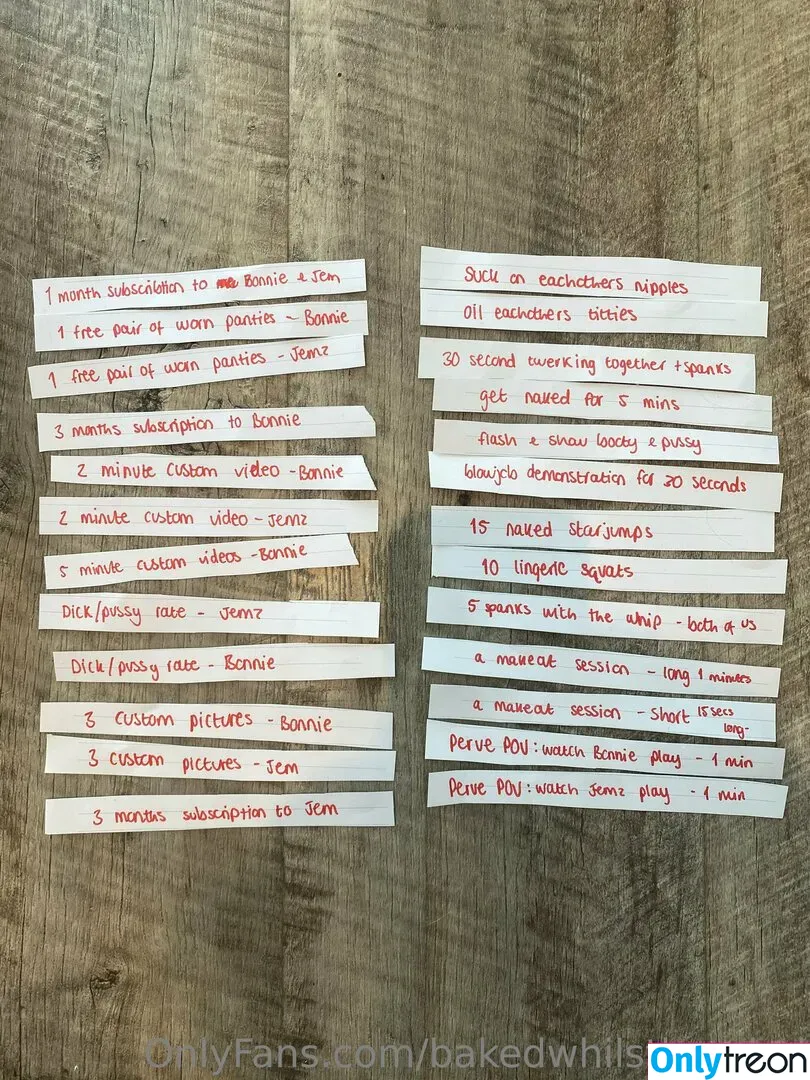 1 month subscribtion to me Bonnie & Jem
1 free pair of worn panties - Bonnie
1 free pair of worn panties - Jemz
3 months subscription to Bonnie
2 minute custom video - Bonnie
2 minute custom video - Jemz
5 minute custom videos - Bonnie
Dick/pussy rate - Jemz
Dick/pussy rate - Bonnie
3 custom pictures - Bonnie
3 custom pictures - Jem
3 months subscription to Jem
Suck on eachothers nipples
oil eachothers titties
30 second twerking together + spanks
get naked for 5 mins
flash & show booty & pussy
blowjob demonstration for 30 seconds
15 naked starjumps
10 lingerie squats
5 spanks with the whip - both of us
a makeout session - long 1 minutes
a makeout session - short 15 secs
long-
Perve POV: watch Bonnie play - 1 min
Perve POV: watch Jemz play - 1 min
OnlyFans.com/bakedwhils
Onlytreon